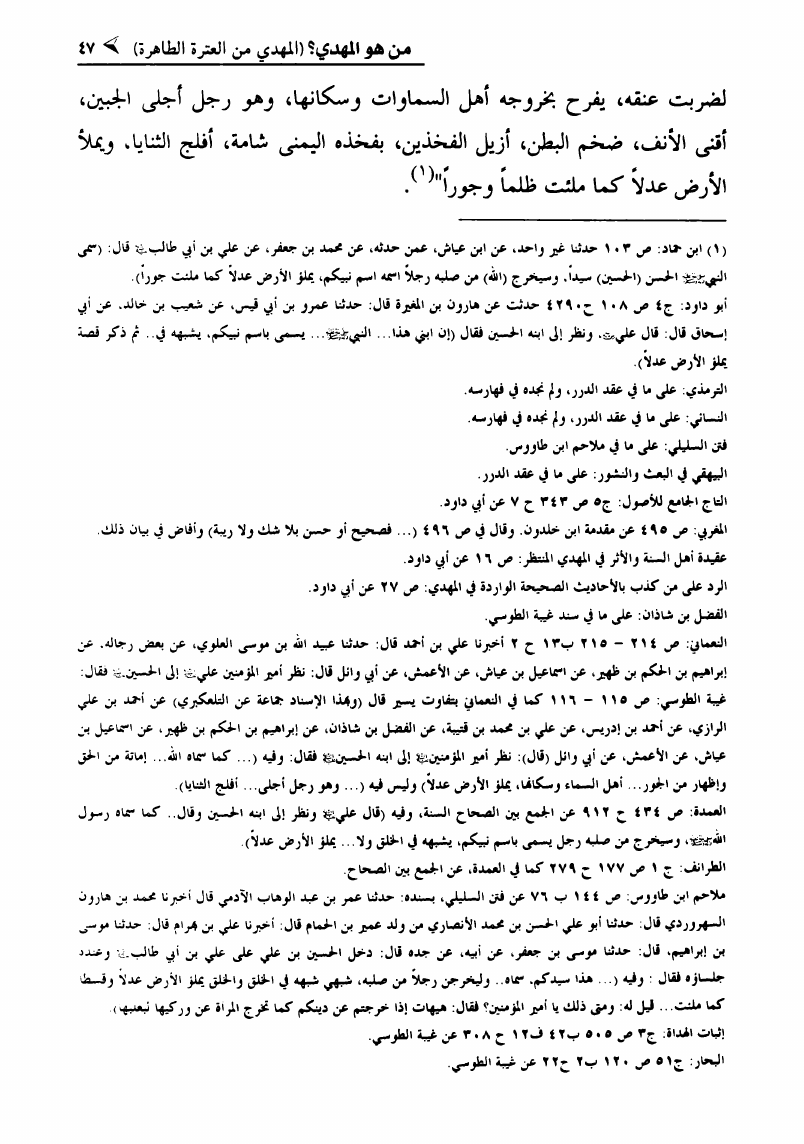 من هو المهدي؟ (المهدي من العترة الطاهرة) ٤٧
لضربت عنقه، يفرح بخروجه أهل السماوات وسكانها، وهو رجل أجلى الجبين،
أقنى الأنف، ضخم البطن، أزيل الفخذين، بفخذه اليمنى شامة، أفلج الثنايا. ويملأ
الأرض عدلاً كما ملئت ظلماً وجوراً"(١).
(١) ابن حماد: ص ١٠٣ حدثنا غير واحد، عن ابن عياش، عمن حدثه، عن محمد بن جعفر، عن علي بن أبي طالب قال: (سمى
النبي ﷺ الحسن (الحسين) سيداً. وسيخرج (الله) من صلبه رجلاً اسمه اسم نبيكم، يملؤ الأرض عدلاً كما ملئت جوراً).
أبو داود: ج٤ ص ١٠٨ ح٤٢٩٠ حدثت عن هارون بن المغيرة قال: حدثنا عمرو بن أبي قيس، عن شعيب بن خالد. عن أبي
إسحاق قال: قال علي، ونظر إلى ابنه الحسين فقال (إن ابني هذا... النبي ﷺ... يسمى باسم نبيكم. يشبهه في.. ثم ذكر قصة
يملؤ الأرض عدلاً).
الترمذي: على ما في عقد الدرر، ولم نجده في فهارسه.
النسائي: على ما في عقد الدرر، ولم نجده في فهارسه.
فتن السليلي: على ما في ملاحم ابن طاووس.
البيهقي في البعث والنشور: على ما في عقد الدرر.
التاج الجامع للأصول: ج٥ ص ٣٤٣ ح ٧ عن أبي داود.
المغربي: ص ٤٩٥ عن مقدمة ابن خلدون. وقال في ص ٤٩٦ (... فصحيح أو حسن بلا شك ولا ريبة) وأفاض في بيان ذلك.
عقيدة أهل السنة والأثر في المهدي المنتظر: ص ١٦ عن أبي داود.
الرد على من كذب بالأحاديث الصحيحة الواردة في المهدي: ص ٢٧ عن أبي داود.
الفضل بن شاذان: على ما في سند غيبة الطوسي.
النعماني: ص ٢١٤ – ٢١٥ ب١٣ ح ٢ أخبرنا علي بن أحمد قال: حدثنا عبيد الله بن موسى العلوي، عن بعض رجاله. عن
إبراهيم بن الحكم بن ظهير، عن اسماعيل بن عياش، عن الأعمش، عن أبي وائل قال: نظر أمير المؤمنين علي إلى الحسين فقال:
غيبة الطوسي: ص ١١٥ – ١١٦ كما في النعماني بتفاوت يسير قال (وبهذا الإسناد جماعة عن التلعكبري) عن أحمد بن علي
الرازي، عن أحمد بن إدريس، عن علي بن محمد بن قتيبة، عن الفضل بن شاذان، عن إبراهيم بن الحكم بن ظهير، عن اسماعيل بن
عياش، عن الأعمش، عن أبي وائل (قال): نظر أمير المؤمنين إلى ابنه الحسين فقال: وفيه (... كما سماه الله... إماتة من الحق
وإظهار من الجور... أهل السماء وسكانها، يملؤ الأرض عدلاً) وليس فيه (... وهو رجل أجلى... أفلج الثنايا).
العمدة: ص ٤٣٤ ح ٩١٢ عن الجمع بين الصحاح الستة، وفيه (قال علي ونظر إلى ابنه الحسين وقال.. كما سماه رسول
الله ﷺ، وسيخرج من صلبه رجل يسمى باسم نبيكم، يشبهه في الخلق ولا... يملؤ الأرض عدلاً).
الطرائف: ج ١ ص ١٧٧ ح ٢٧٩ كما في العمدة، عن الجمع بين الصحاح.
ملاحم ابن طاووس: ص ١٤٤ ب ٧٦ عن فتن السليلي، بسنده: حدثنا عمر بن عبد الوهاب الآدمي قال أخبرنا محمد بن هارون
السهروردي قال: حدثنا أبو علي الحسن بن محمد الأنصاري من ولد عمير بن الحمام قال: أخبرنا علي بن بهرام قال: حدثنا موسى
بن إبراهيم، قال: حدثنا موسى بن جعفر، عن أبيه، عن جده قال: دخل الحسين بن علي على علي بن أبي طالب وعنده
جلساؤه فقال : وفيه (... هذا سيدكم. سماه.. وليخرجن رجلاً من صلبه، شبهي شبهه في الخلق والخلق يملؤ الأرض عدلاً وقسطا
كما ملئت... قيل له: ومتى ذلك يا أمير المؤمنين؟ فقال: هيهات إذا خرجتم عن دينكم كما تخرج المرأة عن وركيها لبعلها).
إثبات الهداة: ج٣ ص ٥٠٥ ب٤٢ ف١٢ ح ٣٠٨ عن غيبة الطوسي.
البحار: ج٥١ ص ١٢٠ ب٢ ح٢٢ عن غيبة الطوسي.